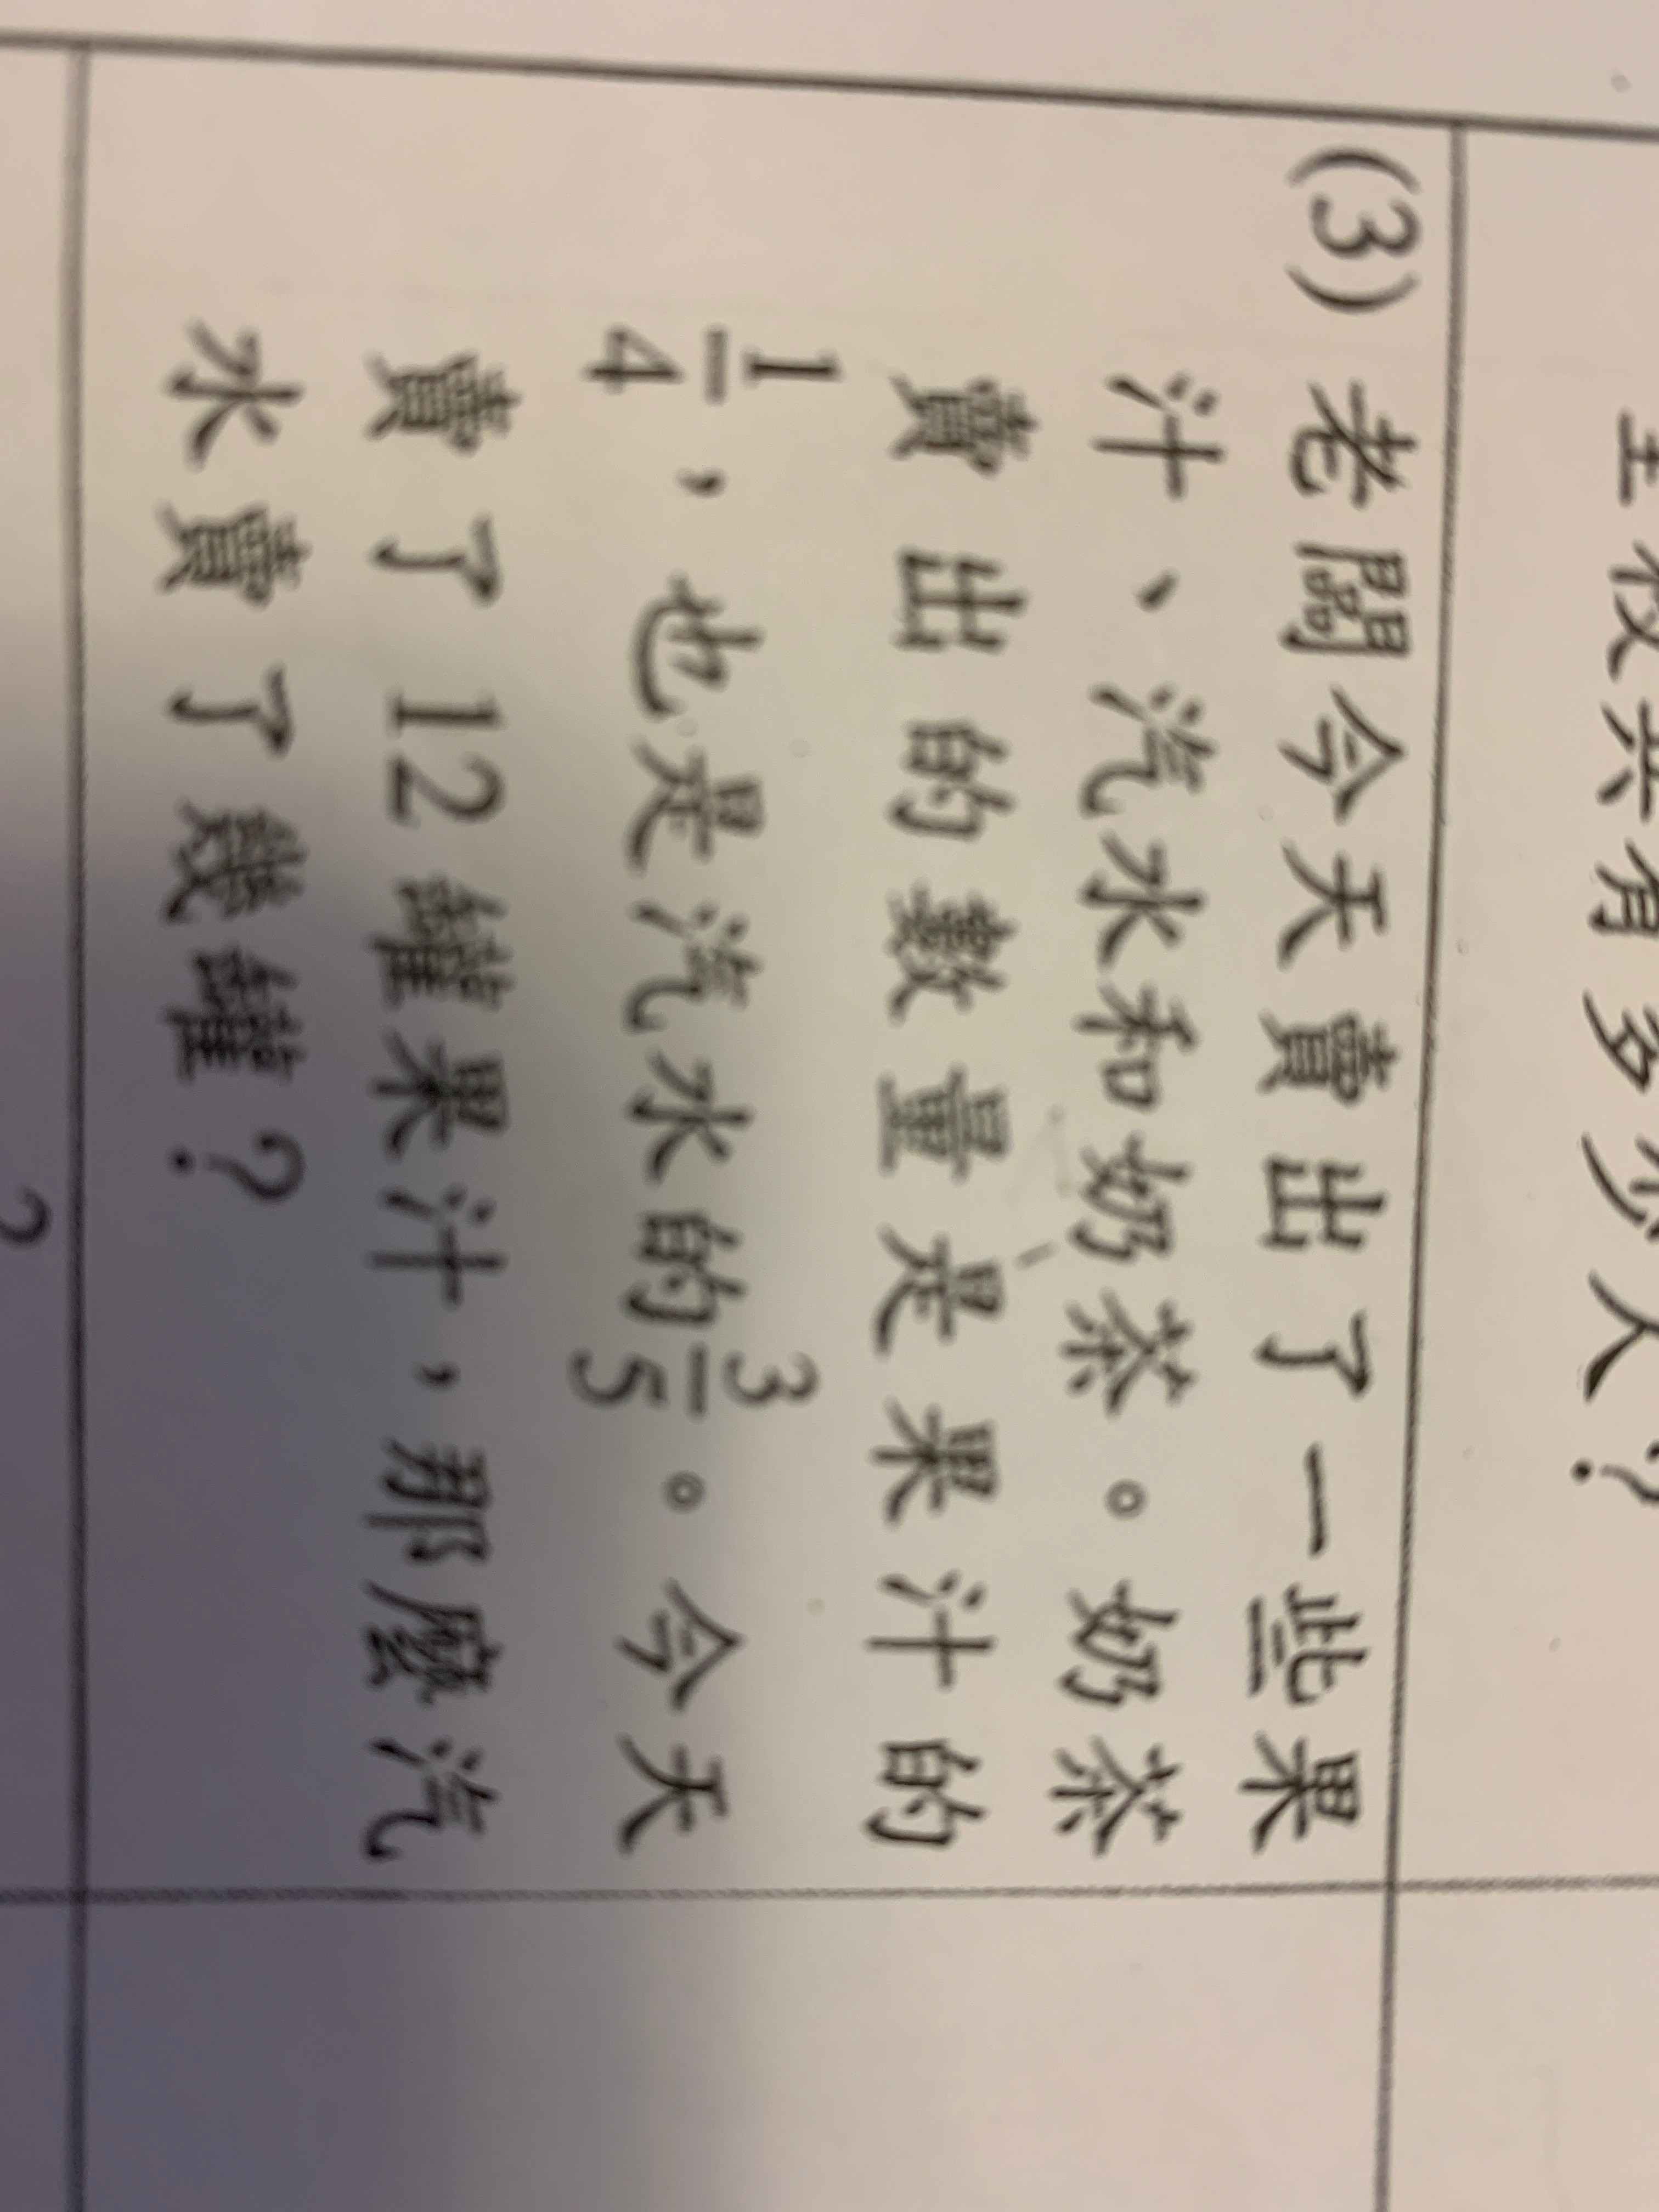 全校共有多少人？
(3) 老闆今天賣出了一些果
汁、汽水和奶茶。奶茶
賣出的數量是果汁的
1/4，也是汽水的3/5。今天
賣了12罐果汁，那麼汽
水賣了幾罐？